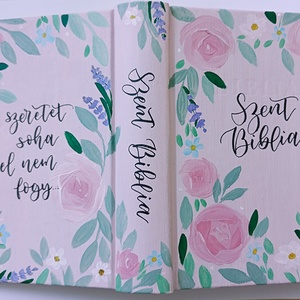 szeretet
soha
el nem
fogy...
Szent Biblia
Szent
Biblia